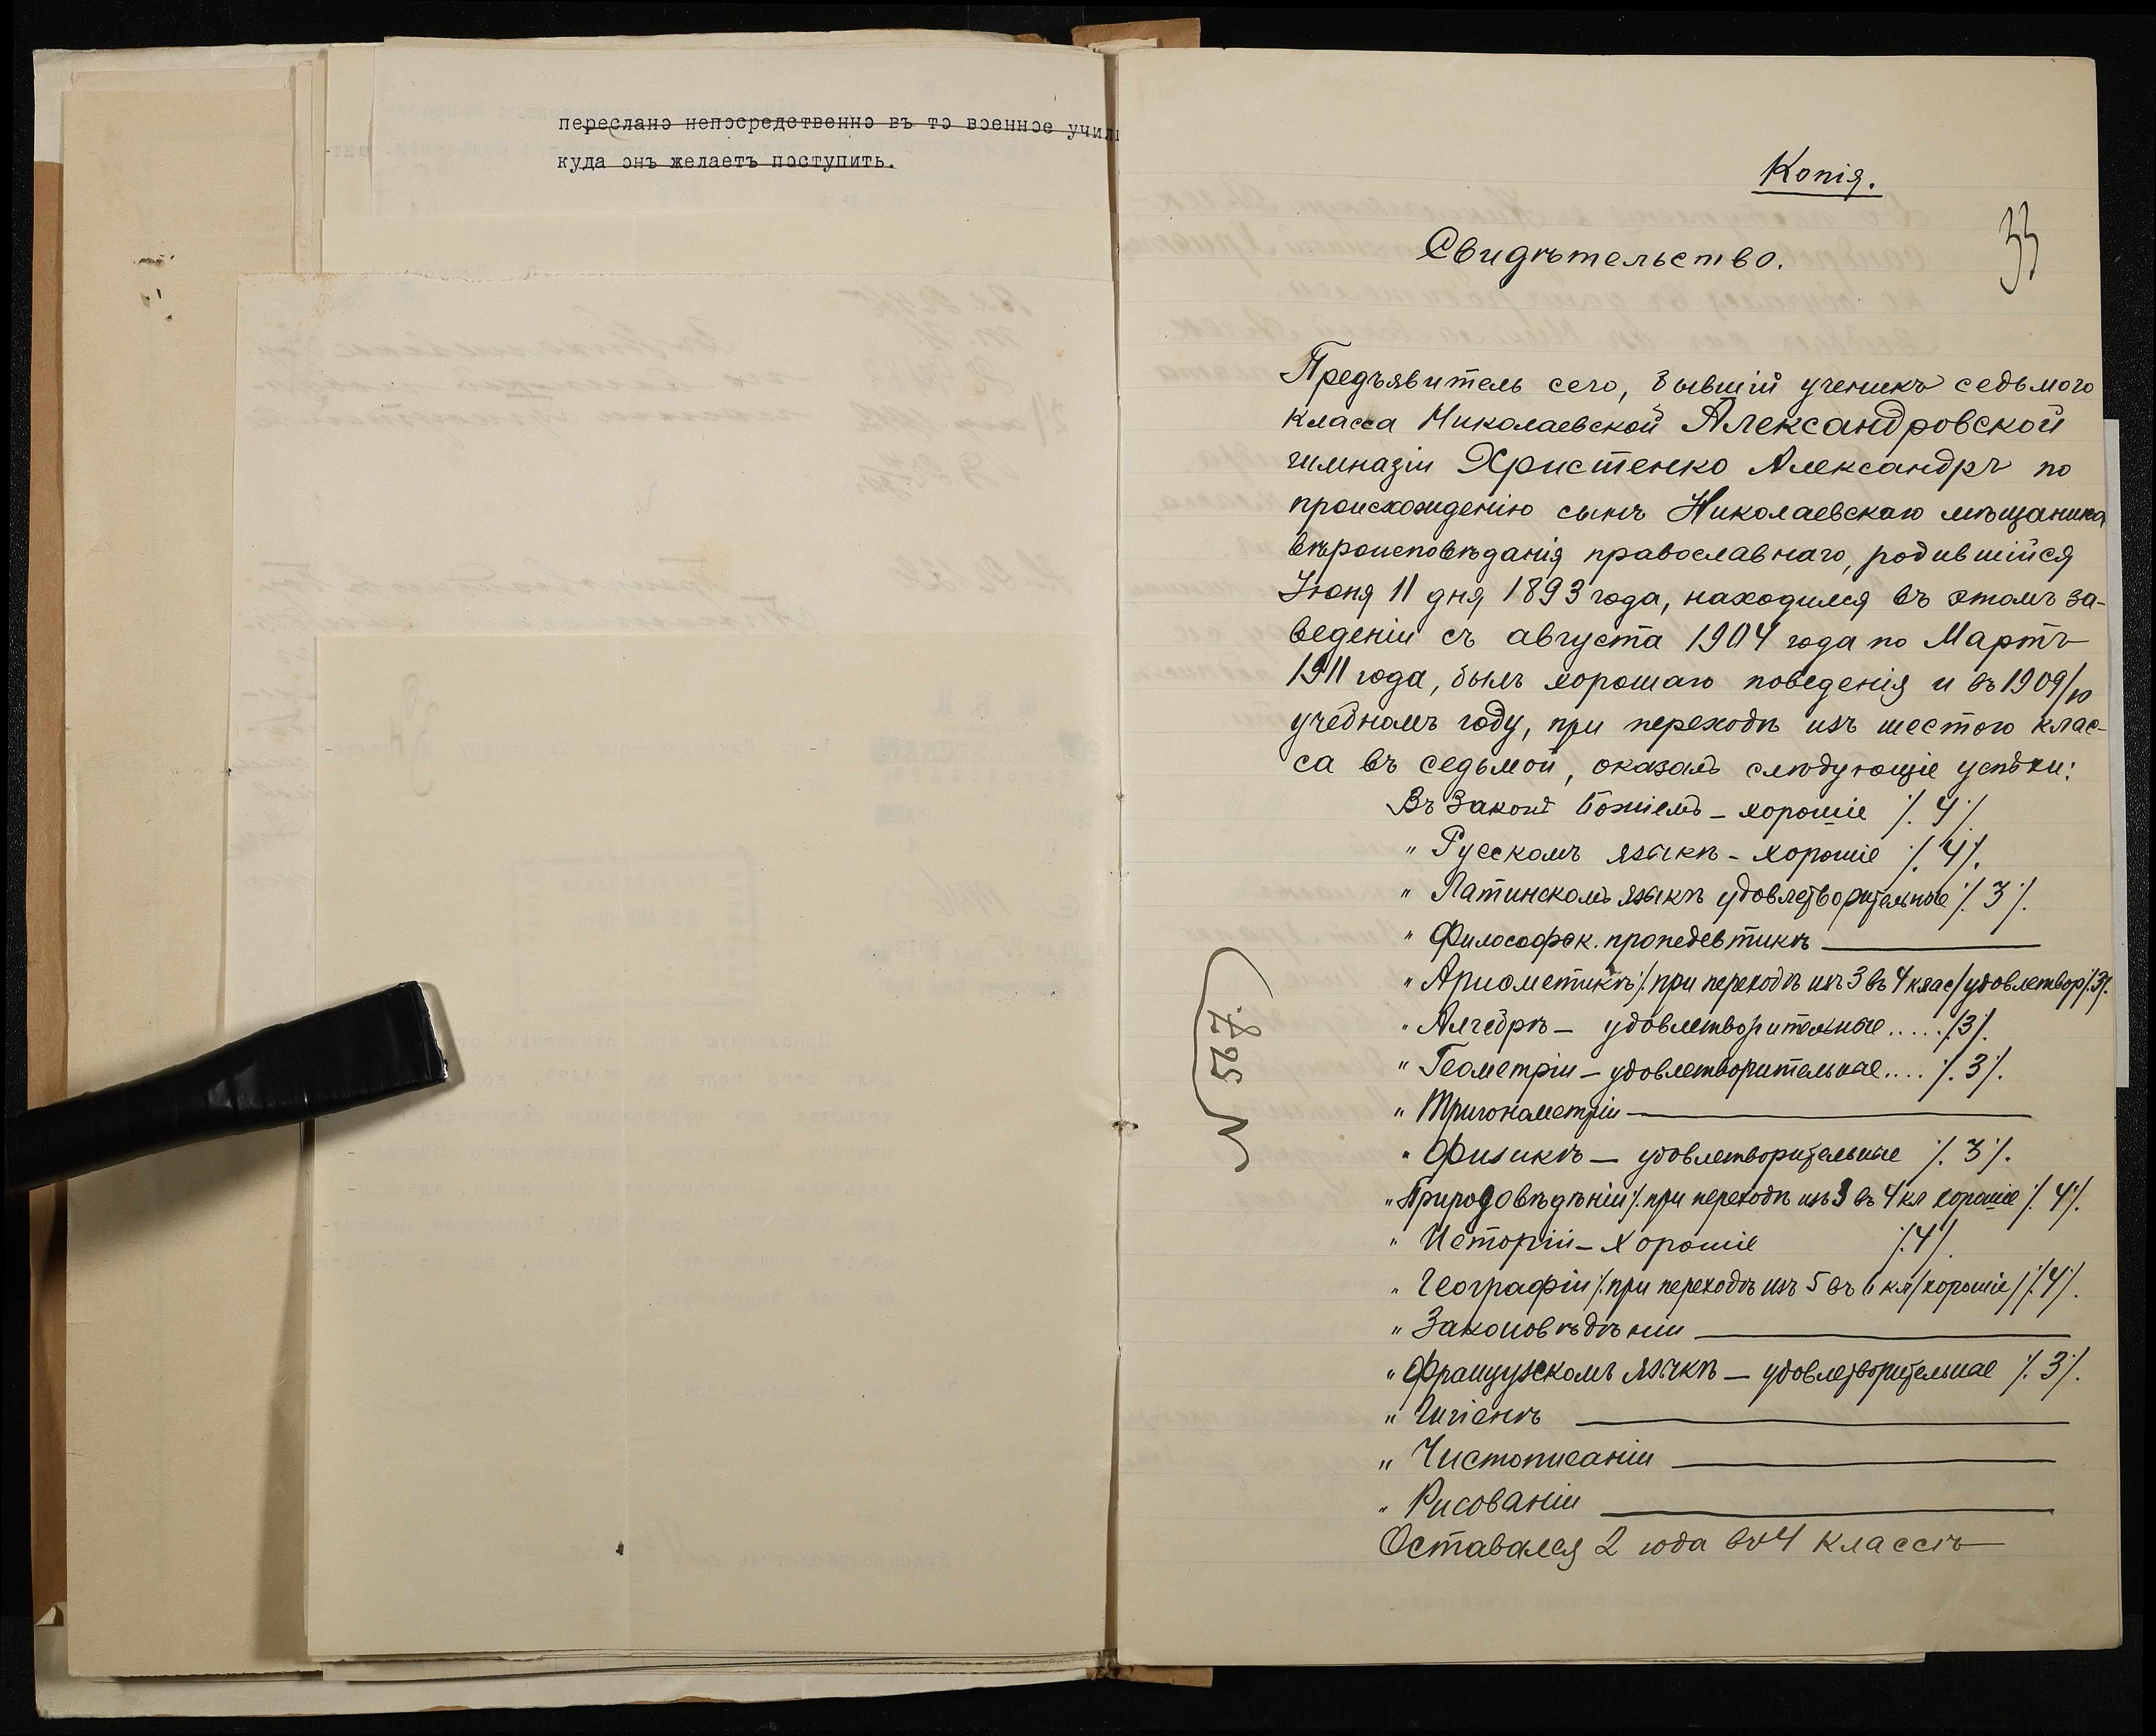 переслано непосредственно въ то военное учили
куда онъ желаетъ поступить.
Копія.
33
Свидѣтельство.
Предъявитель сего, бывшій ученикъ седьмого
класса Николаевской Александровской
гимназіи Христенко Александръ по
происхожденію сынъ Николаевскаго мѣщанина
вѣроисповѣданія православнаго, родившійся
Іюня 11 дня 1893 года, находился въ этомъ за-
веденіи съ августа 1904 года по Мартъ
1911 года, былъ хорошаго поведенія и въ 1909/10
учебномъ году, при переходѣ изъ шестого клас-
са въ седьмой, оказалъ слѣдующіе успѣхи:
Въ Законѣ Божіемъ - хорошіе /. 4 /.
" Русскомъ языкѣ - хорошіе /. 4 /.
" Латинскомъ языкѣ удовлетворительные /. 3 /.
" Философск. пропедевтикѣ —
" Ариѳметикѣ /. при переходѣ изъ 3 въ 4 клас / удовлетвор /. 3 /.
" Алгебрѣ - удовлетворительные ..... /. 3 /.
" Геометріи - удовлетворительные .... /. 3 /.
" Тригонометріи —
" Физикѣ - удовлетворительные /. 3 /.
" Природовѣдѣніи /. при переходѣ изъ 3 въ 4 кл хорошіе /. 4 /.
" Исторіи - хорошіе /. 4 /.
" Географіи /. при переходѣ изъ 5 въ 6 кл / хорошіе / /. 4 /.
" Законовѣдѣніи —
" Французскомъ языкѣ - удовлетворительные /. 3 /.
" Гигіенѣ —
" Чистописаніи —
" Рисованіи —
Оставался 2 года въ 4 классѣ
N 567.